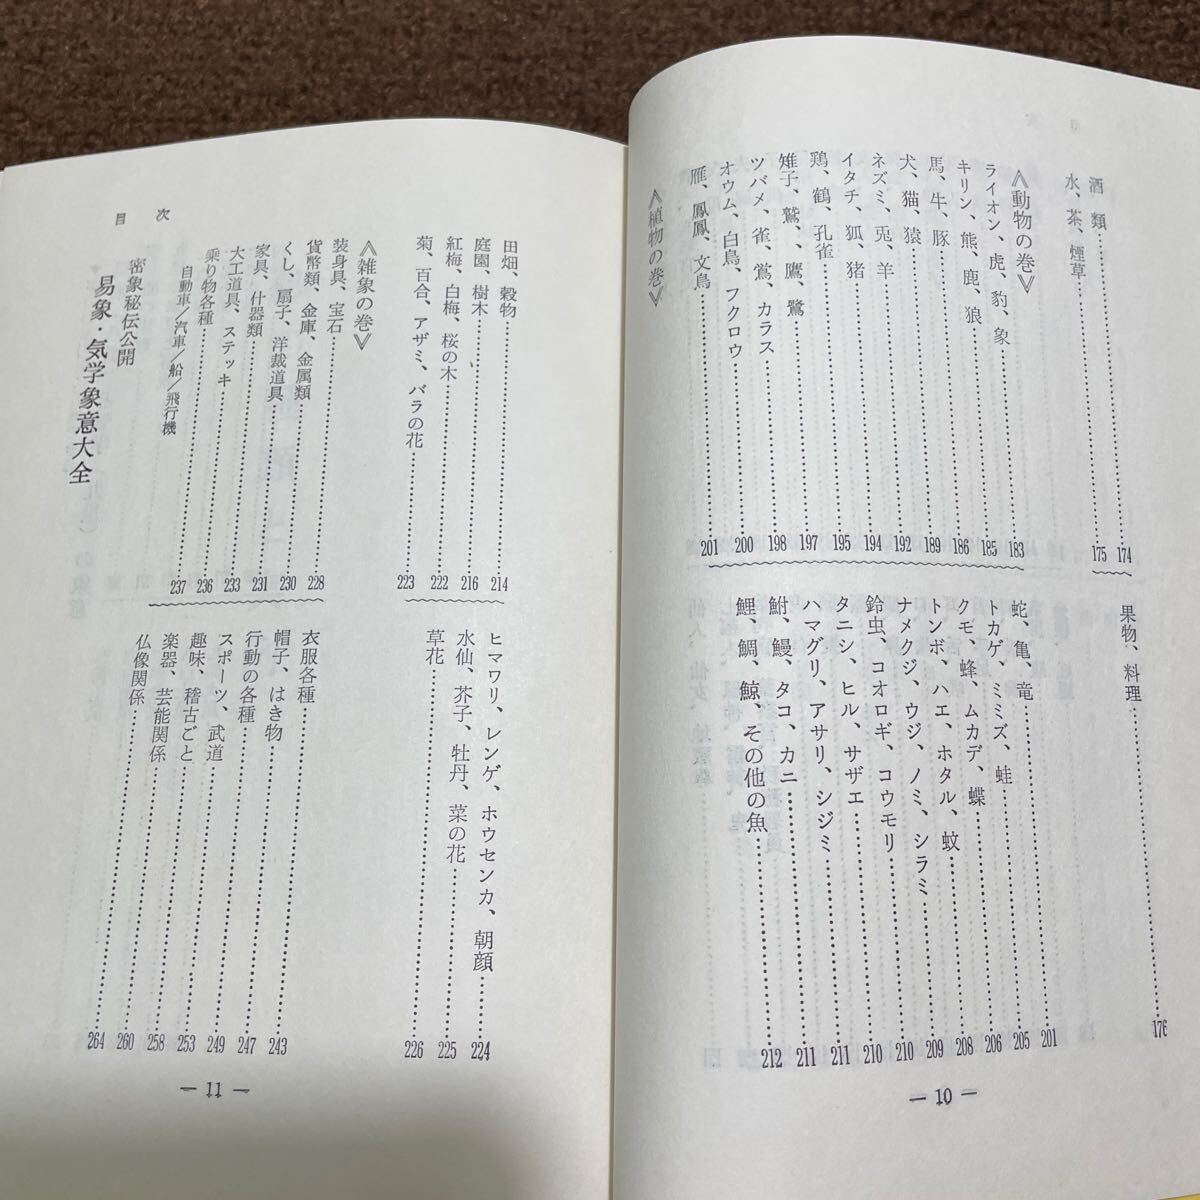 酒類……174
水、茶、煙草……175
果物、料理……176
《動物の巻》
ライオン、虎、豹、象……183
キリン、熊、鹿、狼……185
馬、牛、豚……186
犬、猫、猿……189
ネズミ、兎、羊……192
イタチ、狐、猪……194
鶏、鶴、孔雀……195
雉子、鷲、、鷹、鷺……197
ツバメ、雀、鴬、カラス……198
オウム、白鳥、フクロウ……200
雁、鳳凰、文鳥……201
蛇、亀、竜……201
トカゲ、ミミズ、蛙……205
クモ、蜂、ムカデ、蝶……206
トンボ、ハエ、ホタル、蚊……208
ナメクジ、ウジ、ノミ、シラミ……209
鈴虫、コオロギ、コウモリ……210
タニシ、ヒル、サザエ……210
ハマグリ、アサリ、シジミ……211
鮒、鰻、タコ、カニ……211
鯉、鯛、鯨、その他の魚……212
《植物の巻》
― 10 ―
田畑、穀物……214
庭園、樹木……216
紅梅、白梅、桜の木……222
菊、百合、アザミ、バラの花……223
ヒマワリ、レンゲ、ホウセンカ、朝顔……224
水仙、芥子、牡丹、菜の花……225
草花……226
《雑象の巻》
装身具、宝石……228
貨幣類、金庫、金属類……230
くし、扇子、洋裁道具……231
家具、什器類……233
大工道具、ステッキ……236
乗り物各種……237
自動車/汽車/船/飛行機
衣服各種……243
帽子、はき物……247
行動の各種……249
スポーツ、武道……253
趣味、稽古ごと……258
楽器、芸能関係……260
仏像関係……264
密象秘伝公開
易象・気学象意大全
目次
― 11 ―